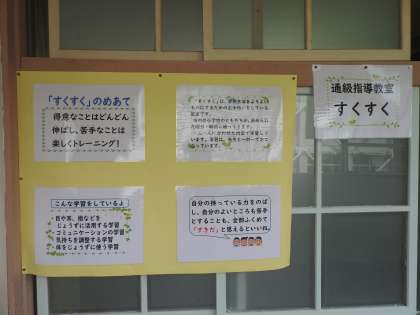 「すくすく」のめあて
得意なことはどんどん
伸ばし、苦手なことは
楽しくトレーニング!
通級指導教室
すくすく
こんな学習をしているよ
目や耳、指などを
じょうずに活用する学習
コミュニケーションの学習
気持ちを調整する学習
体をじょうずに使う学習
自分の持っている力をのば
し、自分のよいところも苦手
とすることも、全部ふくめて
「すきだ」と思えるといいね。